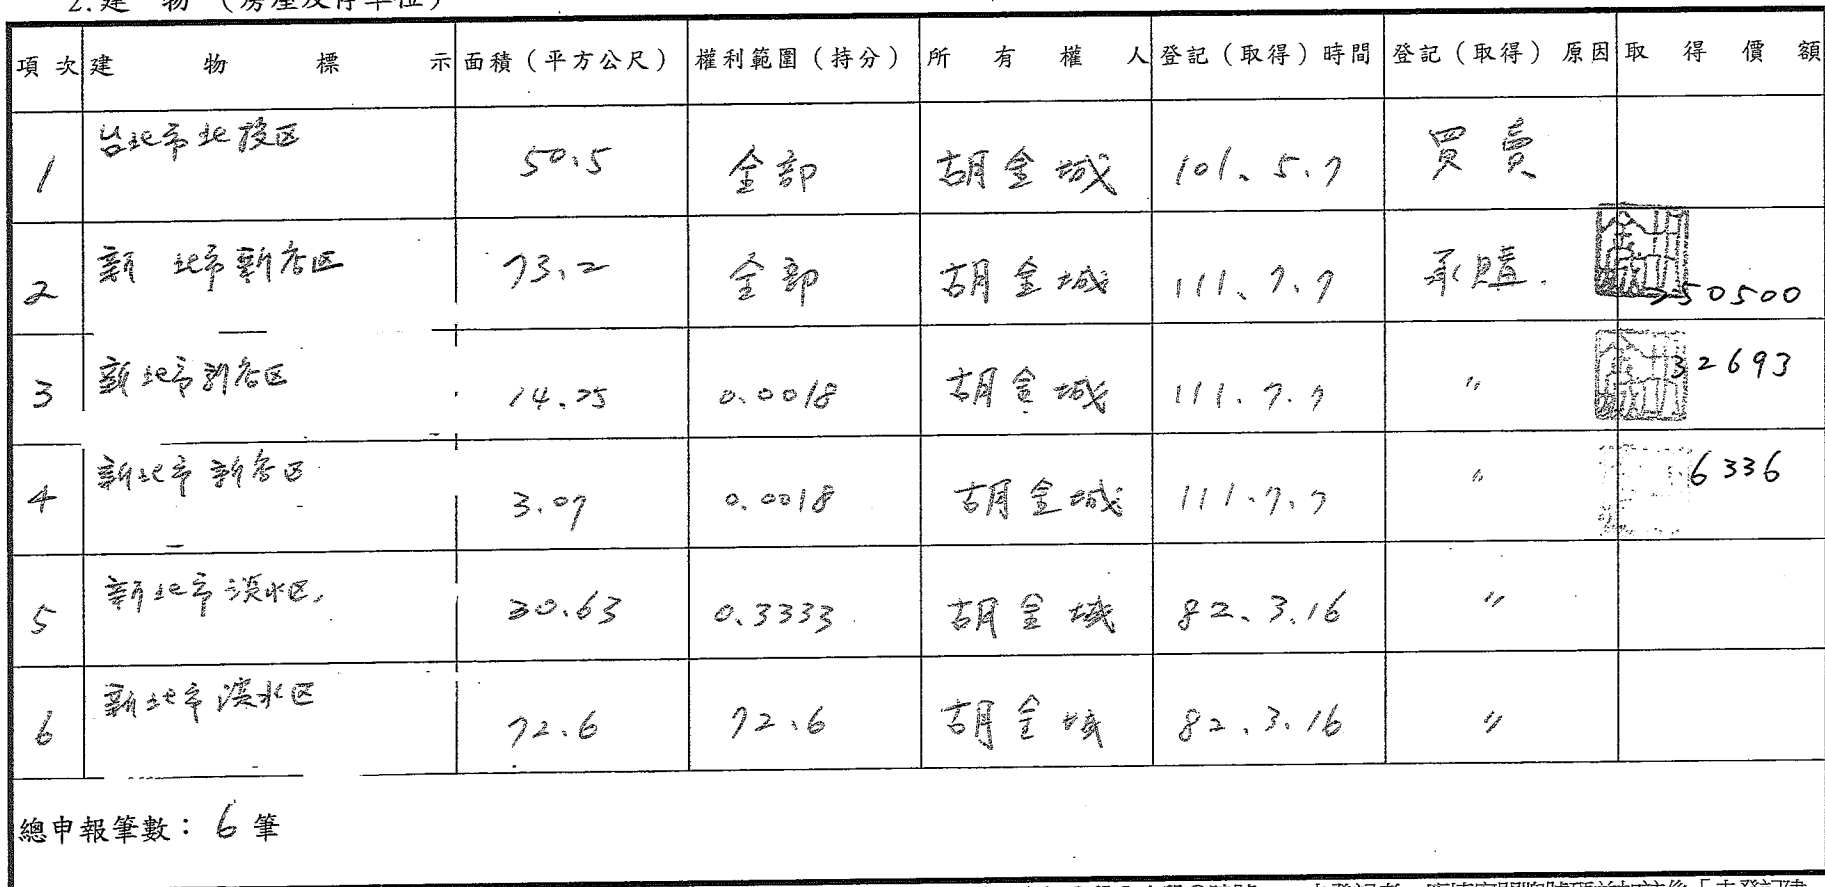 2.建 物 (房屋及停車位)
項次 建物標示 面積（平方公尺） 權利範圍（持分） 所有權人 登記（取得）時間 登記（取得）原因 取得價額
1 台北市北投区 50.5 全部 胡金城 101、5、7 買賣
2 新北市新店区 73.2 全部 胡金城 111、7、7 承購. 250500
3 新北市新店区 14.25 0.0018 胡金城 111.7.7 〃 32693
4 新北市新店区 3.07 0.0018 胡金城 111.7.7 〃 6336
5 新北市淡水区 30.63 0.3333 胡金城 82、3.16 〃
6 新北市淡水区 72.6 72.6 胡金城 82、3.16 〃
總申報筆數：6 筆